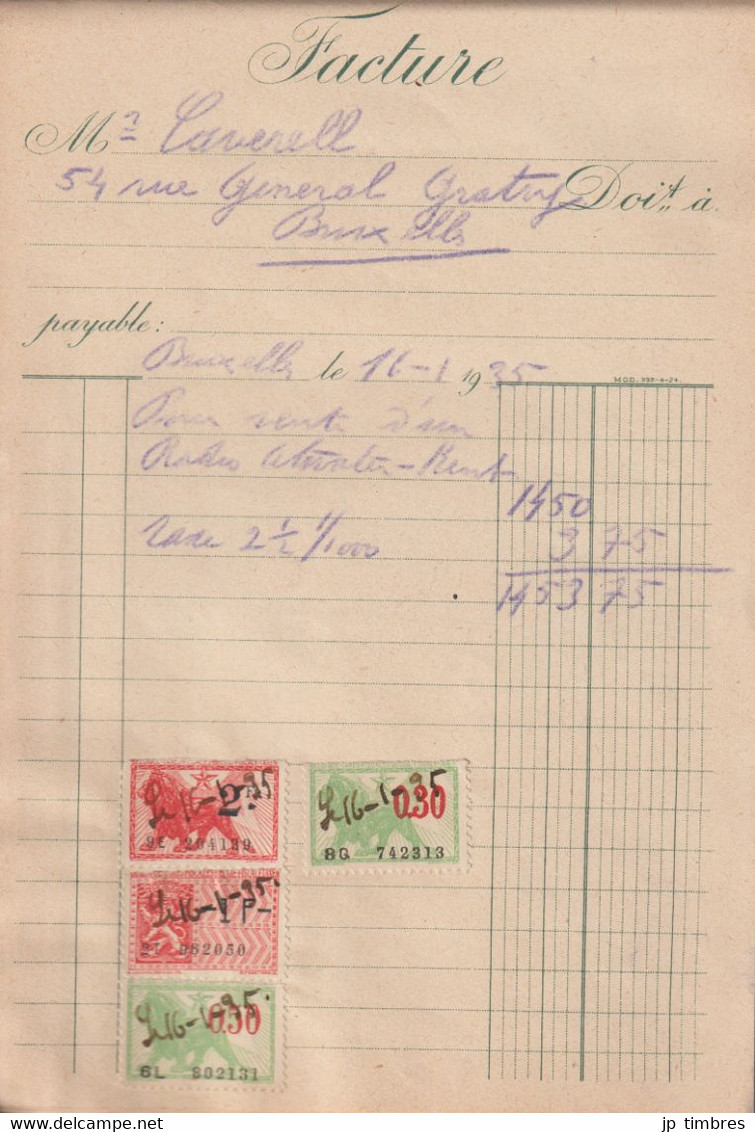 Facture
Mr Caverell
54 rue General Gratry Doit à
Bruxelles
payable:
Bruxelles le 16-1 1935
MOD. 997-4-24.
Pour vente d'un
Radio Atwater-Kent
1450
Taxe 2 1/2 1/1000 3 75
1453 75
Le 16-1-35 2Fr
9E 204139
Le 16-1-35 0.30
8G 742313
Le 16-1-35. 1 F-
2I 962050
Le 16-1-35. 0.30
6L 802131
jp timbres